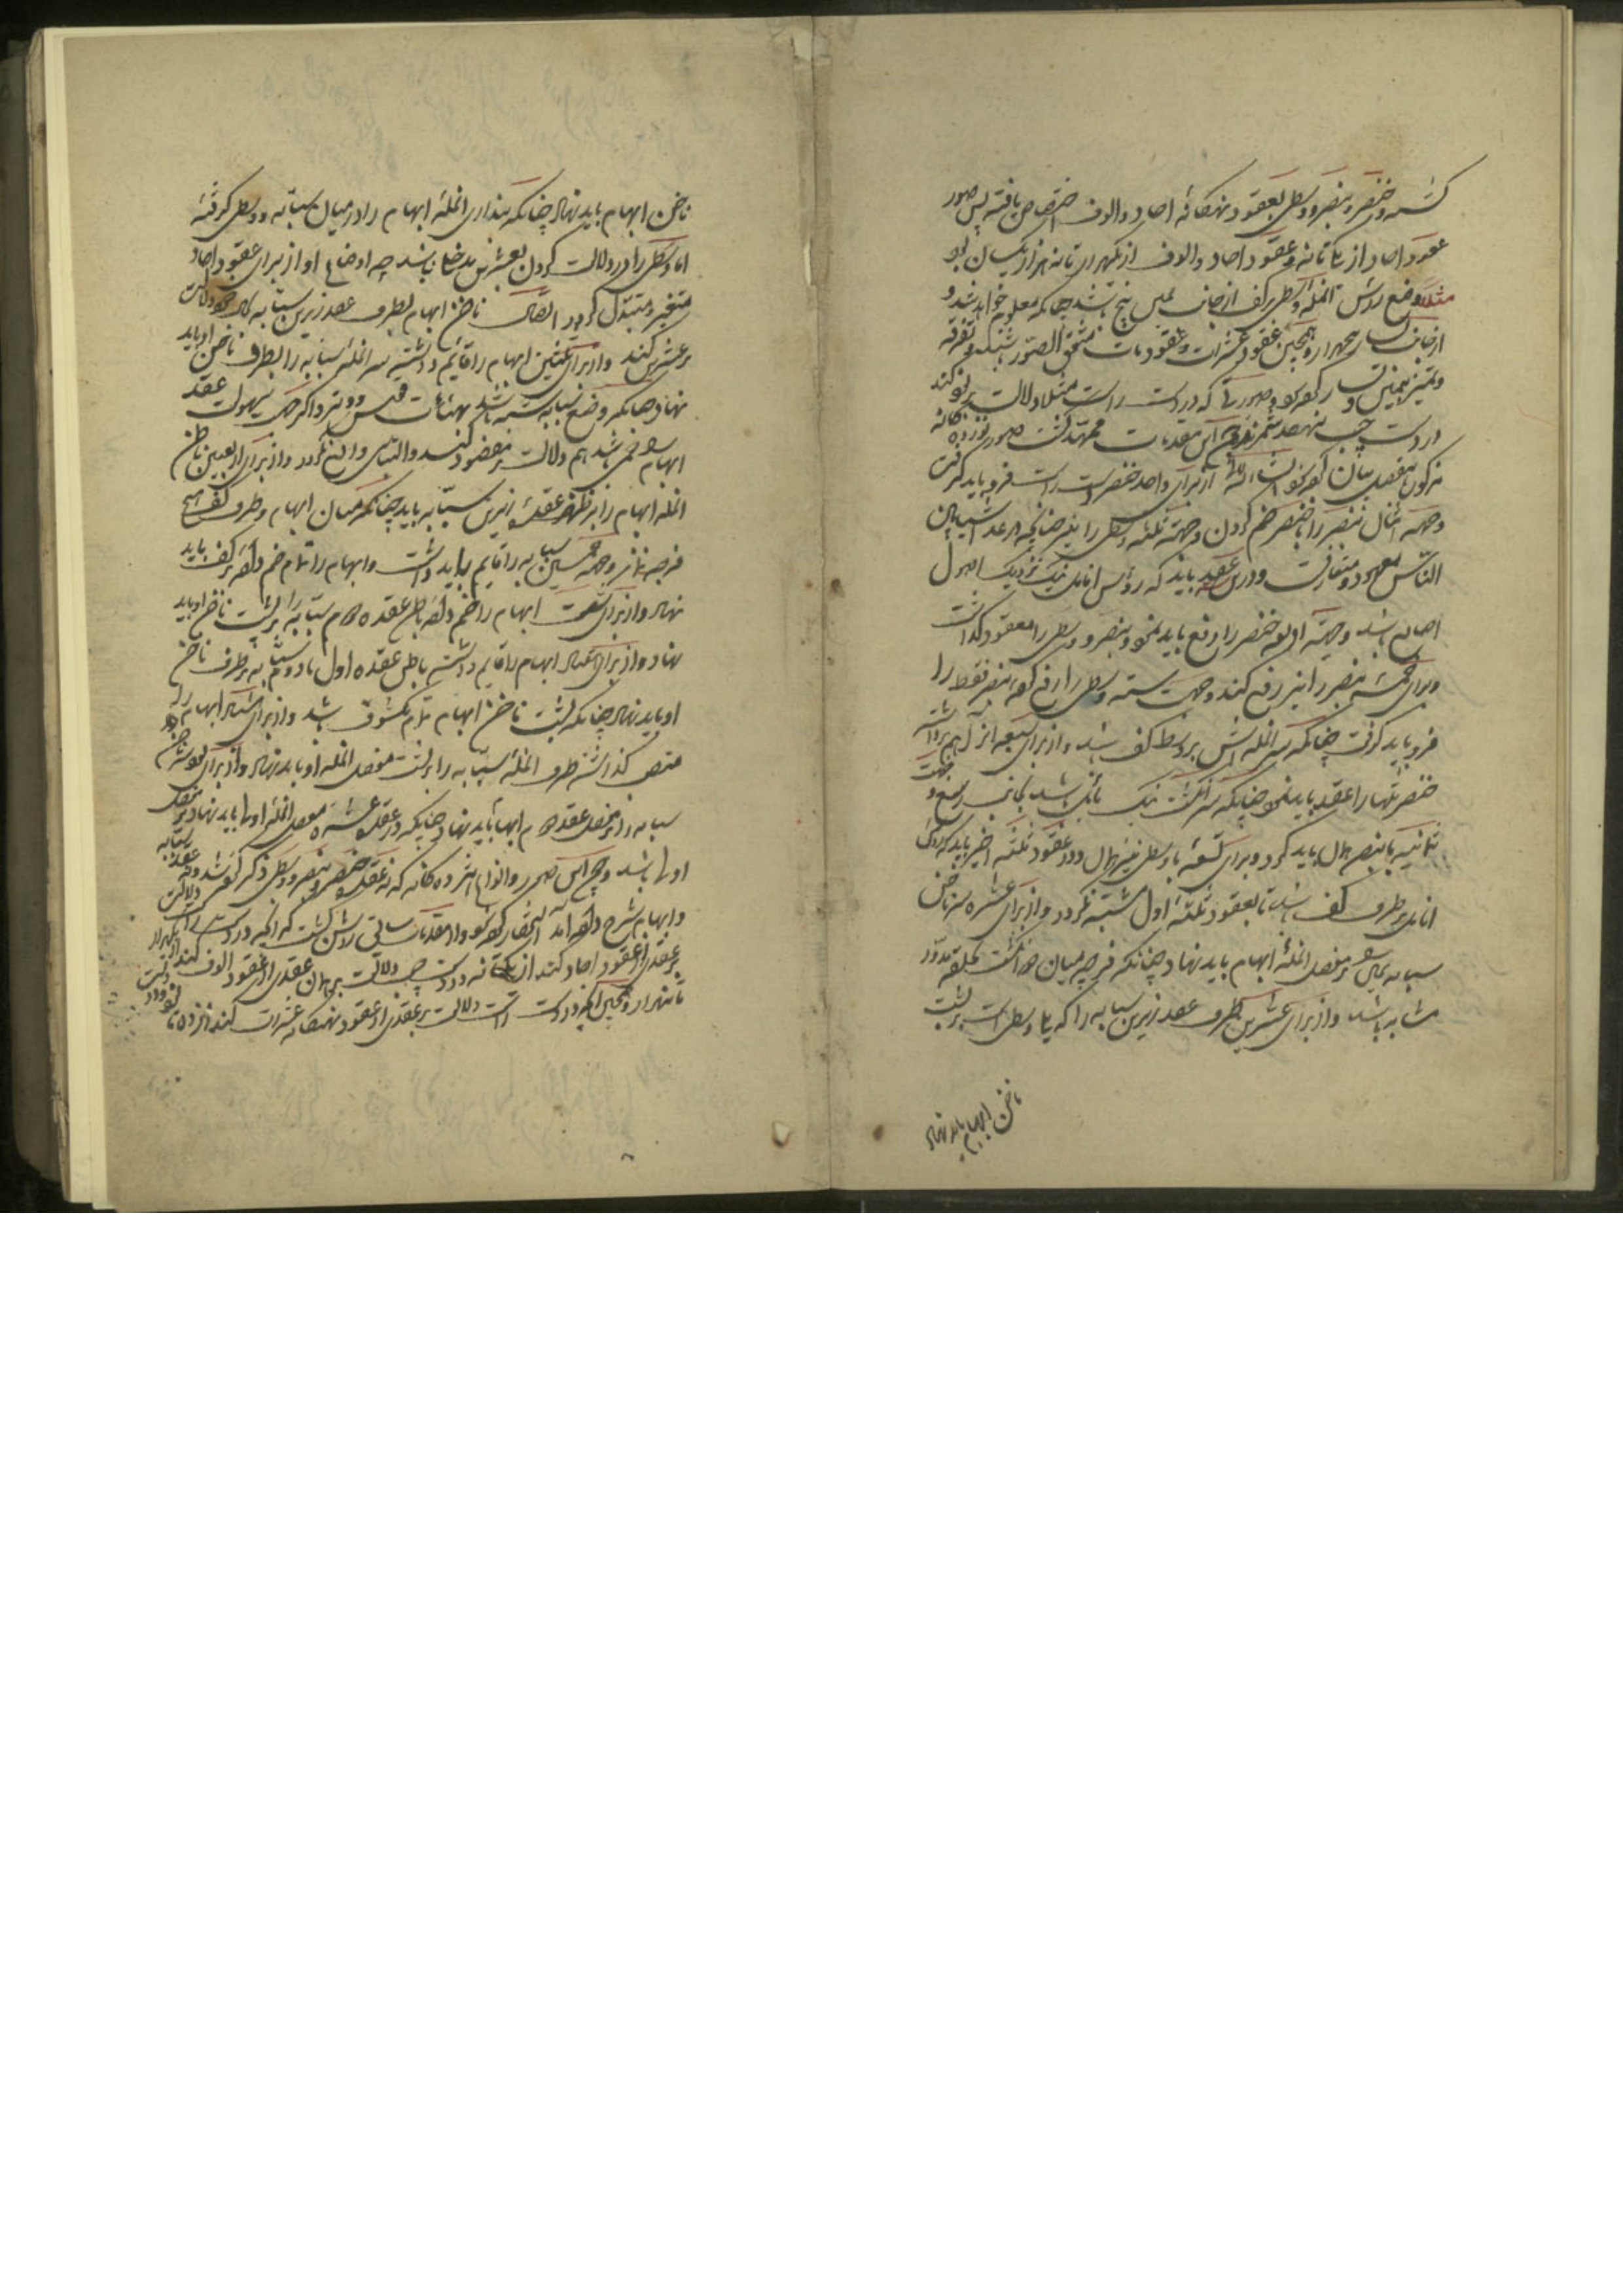 کشته و خنصر و بنصر و وسطی بعقود نهکانه احاد والوف اختصاص یافته پس صور
عقود احاد از یک تا نه و عقود احاد والوف از یکهزار تا نه هزار یکسان بود
مثلا وضع راس انمله وسطی بر کف از جانب یمین پنج باشد چنانکه معلوم خواهد شد و
از جانب یسار پنجهزار و همچنین عقود عشرات و عقود مآت متفق الصور باشند و تفرقه
و تمییز بیمین و یسار کرده شود و صورتی که در دست راست مثلا دلالت بر نود کند
در دست چپ بنهصد و چون این مقدمات ممهد گشت صور نوزده کانه
مذکوره مفصل بیان کرده شود انشاء الله از برای واحد خنصر دست راست فرو باید گرفت
و جهت اثنان بنصر را با خنصر ضم کردن و جهت ثلثه وسطی را نیز چنانچه در عد اشیا بین
الناس معهود و متعارفست و درین عقد باید که رؤس انامل نیک نزدیک اصول
اصابع باشد و جهت اربعه خنصر را رفع باید نمود و بنصر و وسطی را معقود گذاشت
و برای خمسه بنصر را نیز رفع کنند و جهت سته وسطی را رفع کرده بنصر فقط را
فرو باید گرفت چنانکه سر انمله اش بر وسط کف باشد و از برای سبعه آنرا هم برداشته
خنصر تنها را عقد باید نمود چنانکه سر انگشت نیک مائل باشد بجانب رسغ و جهت
ثمانیه با بنصر همان باید کرد و برای تسعه با وسطی نیز همان و در عقود ثلثه اخیر باید که رؤس
انامل بر طرف کف باشد تا بعقود ثلثه اول مشتبه نگردد و از برای عشره سر ناخن
سبابه یمنی بر مفصل انمله ابهام باید نهاد چنانکه فرجه میان دو انگشت بحلقه مدور
مشابه باشد و از برای عشرین طرف عقد زیرین سبابه را که یلی وسطی است بر پشت
ناخن ابهام باید نهاد
ناخن ابهام باید نهاد چنانکه پنداری انمله ابهام را در میان سبابه و وسطی گرفته
اما وسطی را در دلالت کردن بعشرین مدخلی نباشد چه اوضاع او از برای عقود احاد
متغیر و متبدل گردد و اتصال ناخن ابهام بطرف عقد زیرین سبابه بحال خود دلالت
بر عشرین کند و از برای ثلثین ابهام را قائم داشته سر انمله سبابه را بطرف ناخن او باید
نهاد چنانکه وضع سبابه شبیه باشد بهیئات قوس و وتر و اگر جهت سهولت عقد
ابهام را خمی باشد هم دلالت بر مقصود کند و التباس واقع نگردد و از برای اربعین باطن
انمله ابهام را بر ظهر عقده زیرین سبابه باید نهاد چنانکه میان ابهام و طرف کف هیچ
فرجه نماند و جهت خمسین سبابه را قایم باید داشت و ابهام را تمام خم داده بر کف باید
نهاد و از برای ستین ابهام را خم داده باطن عقده دوم سبابه را بر پشت ناخن او باید
نهاد و از برای سبعین ابهام را قایم داشته باطن عقده اول یا دوم سبابه بر طرف ناخن
او باید نهاد چنانکه پشت ناخن ابهام تمام مکشوف باشد و از برای ثمانین ابهام را
منتصب گذاشته طرف انمله سبابه را بر پشت مفصل انمله او باید نهاد و از برای تسعین سر ناخن
سبابه را بر مفصل عقده دوم ابهام باید نهاد چنانکه در عقد عشره بر مفصل انمله اولی باید نهاد
اولی باشد و چون این صور و انواع نوزده کانه که در عقد خنصر و بنصر و وسطی ذکر کرده شد و عقد سبابه
و ابهام بشرح داده آمد استحضار کرده شود و از مقدمات سابق روشن گشت که آنچه در دست راست دلالت
بر عقدی از عقود احاد کند از یک تا نه در دست چپ دلالت بر همان عقدی از عقود الوف کند از یکهزار
تا نه هزار و همچنین آنچه در دست راست دلالت بر عقدی از عقود نهکانه عشرات کند از ده تا نود در دست